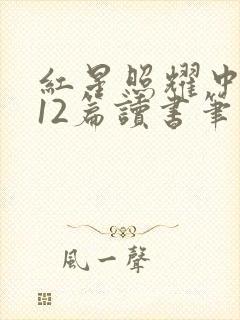 紅星照耀中
12篇讀書筆
風一聲